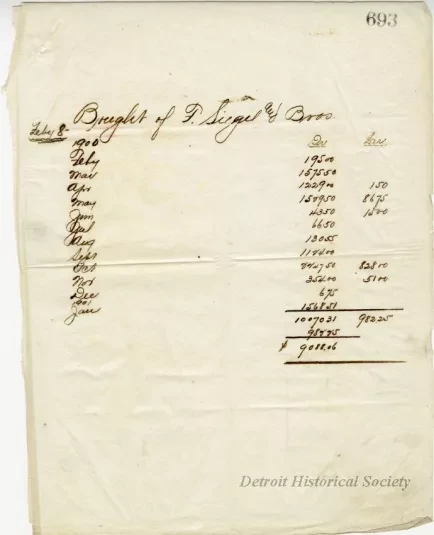 693
Bought of F. Siegel and Bros.
Feby 8-
1900 Dr
Feby 19500
Mar 157550
Apr 122900 150
May 158950 8675
Jun 4350 1500
Jul 6650
Aug 13055
Sept 118400
Oct 82800
Nov 35400 5100
Dec 675
1901
Jan 156851
1007031 98225
98225
$ 9088.06
Detroit Historical Society